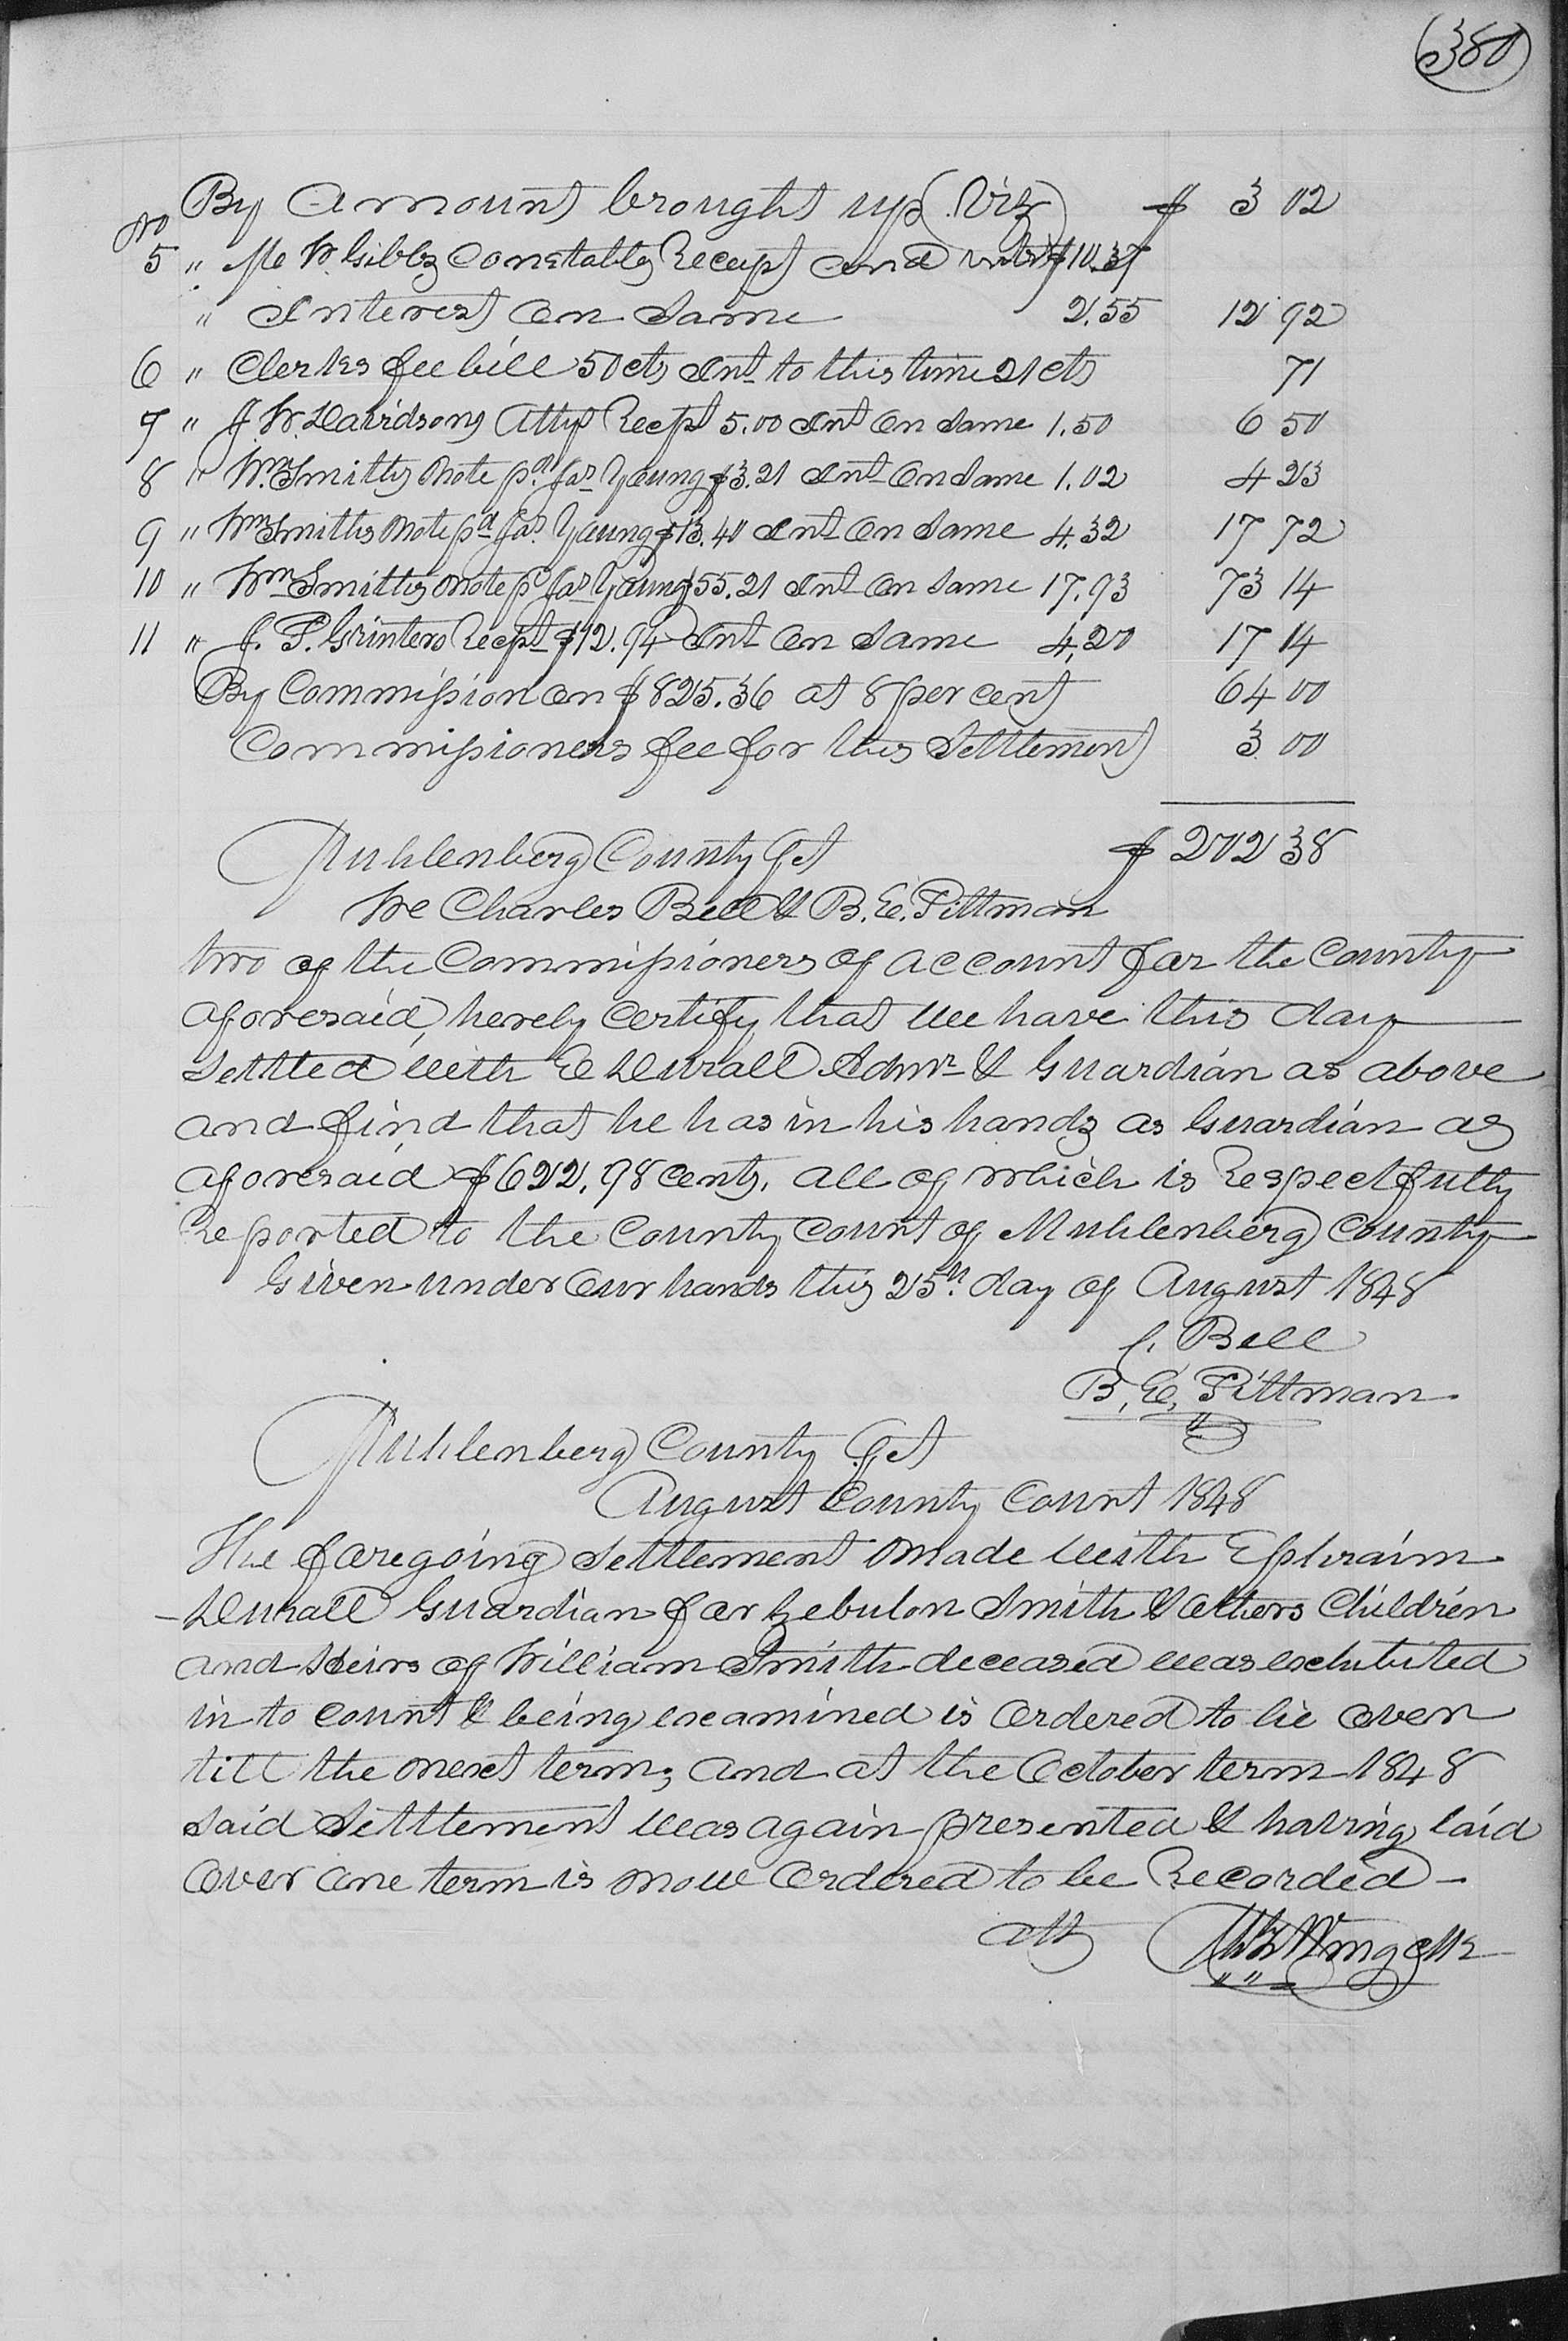 380
By amount brought up (Viz) $ 3 02
No
5 " Mc W. Gibbs Constables Receipt and $10.37
" Interest on Same 2.55 12 92
6 " Clerks fee bill 50 cts Int to this time 21 cts 71
7 " J. W. Davidsons Attys Recpt 5.00 Int on Same 1.50 6 50
8 " Wm Smiths Note pd Jas Young $3.21 Int on Same 1.02 4 23
9 " Wm Smiths Note pd Jas Young $13.40 Int on Same 4.32 17 72
10 " Wm Smiths Note pd Jas Young $55.21 Int on Same 17.93 73 14
11 " J. P. Grinters Recpt $12.94 Int on Same 4.20 17 14
By Commission on $825.36 at 8 per cent 64 00
Commissioners fee for this Settlement 3 00
$ 202 38
Muhlenberg County Sct
We Charles Bell & B. E. Pittman
two of the Commissioners of account for the County
aforesaid, hereby Certify that we have this day
Settled with E Duvall Admr & Guardian as above
and find that he has in his hands as Guardian as
aforesaid $622.98 cents, all of which is Respectfully
Reported to the County Court of Muhlenberg County
Given under our hands this 25th day of August 1848
C. Bell
B. E. Pittman
Muhlenberg County Sct
August County Court 1848
The foregoing Settlement made with Ephraim
Duvall Guardian for Zebulon Smith & others Children
and Heirs of William Smith deceased was exhibited
in to court & being examined is ordered to lie over
till the next term; and at the October term 1848
Said Settlement was again presented & having laid
over one term is now ordered to be Recorded -
Att Wing Clk